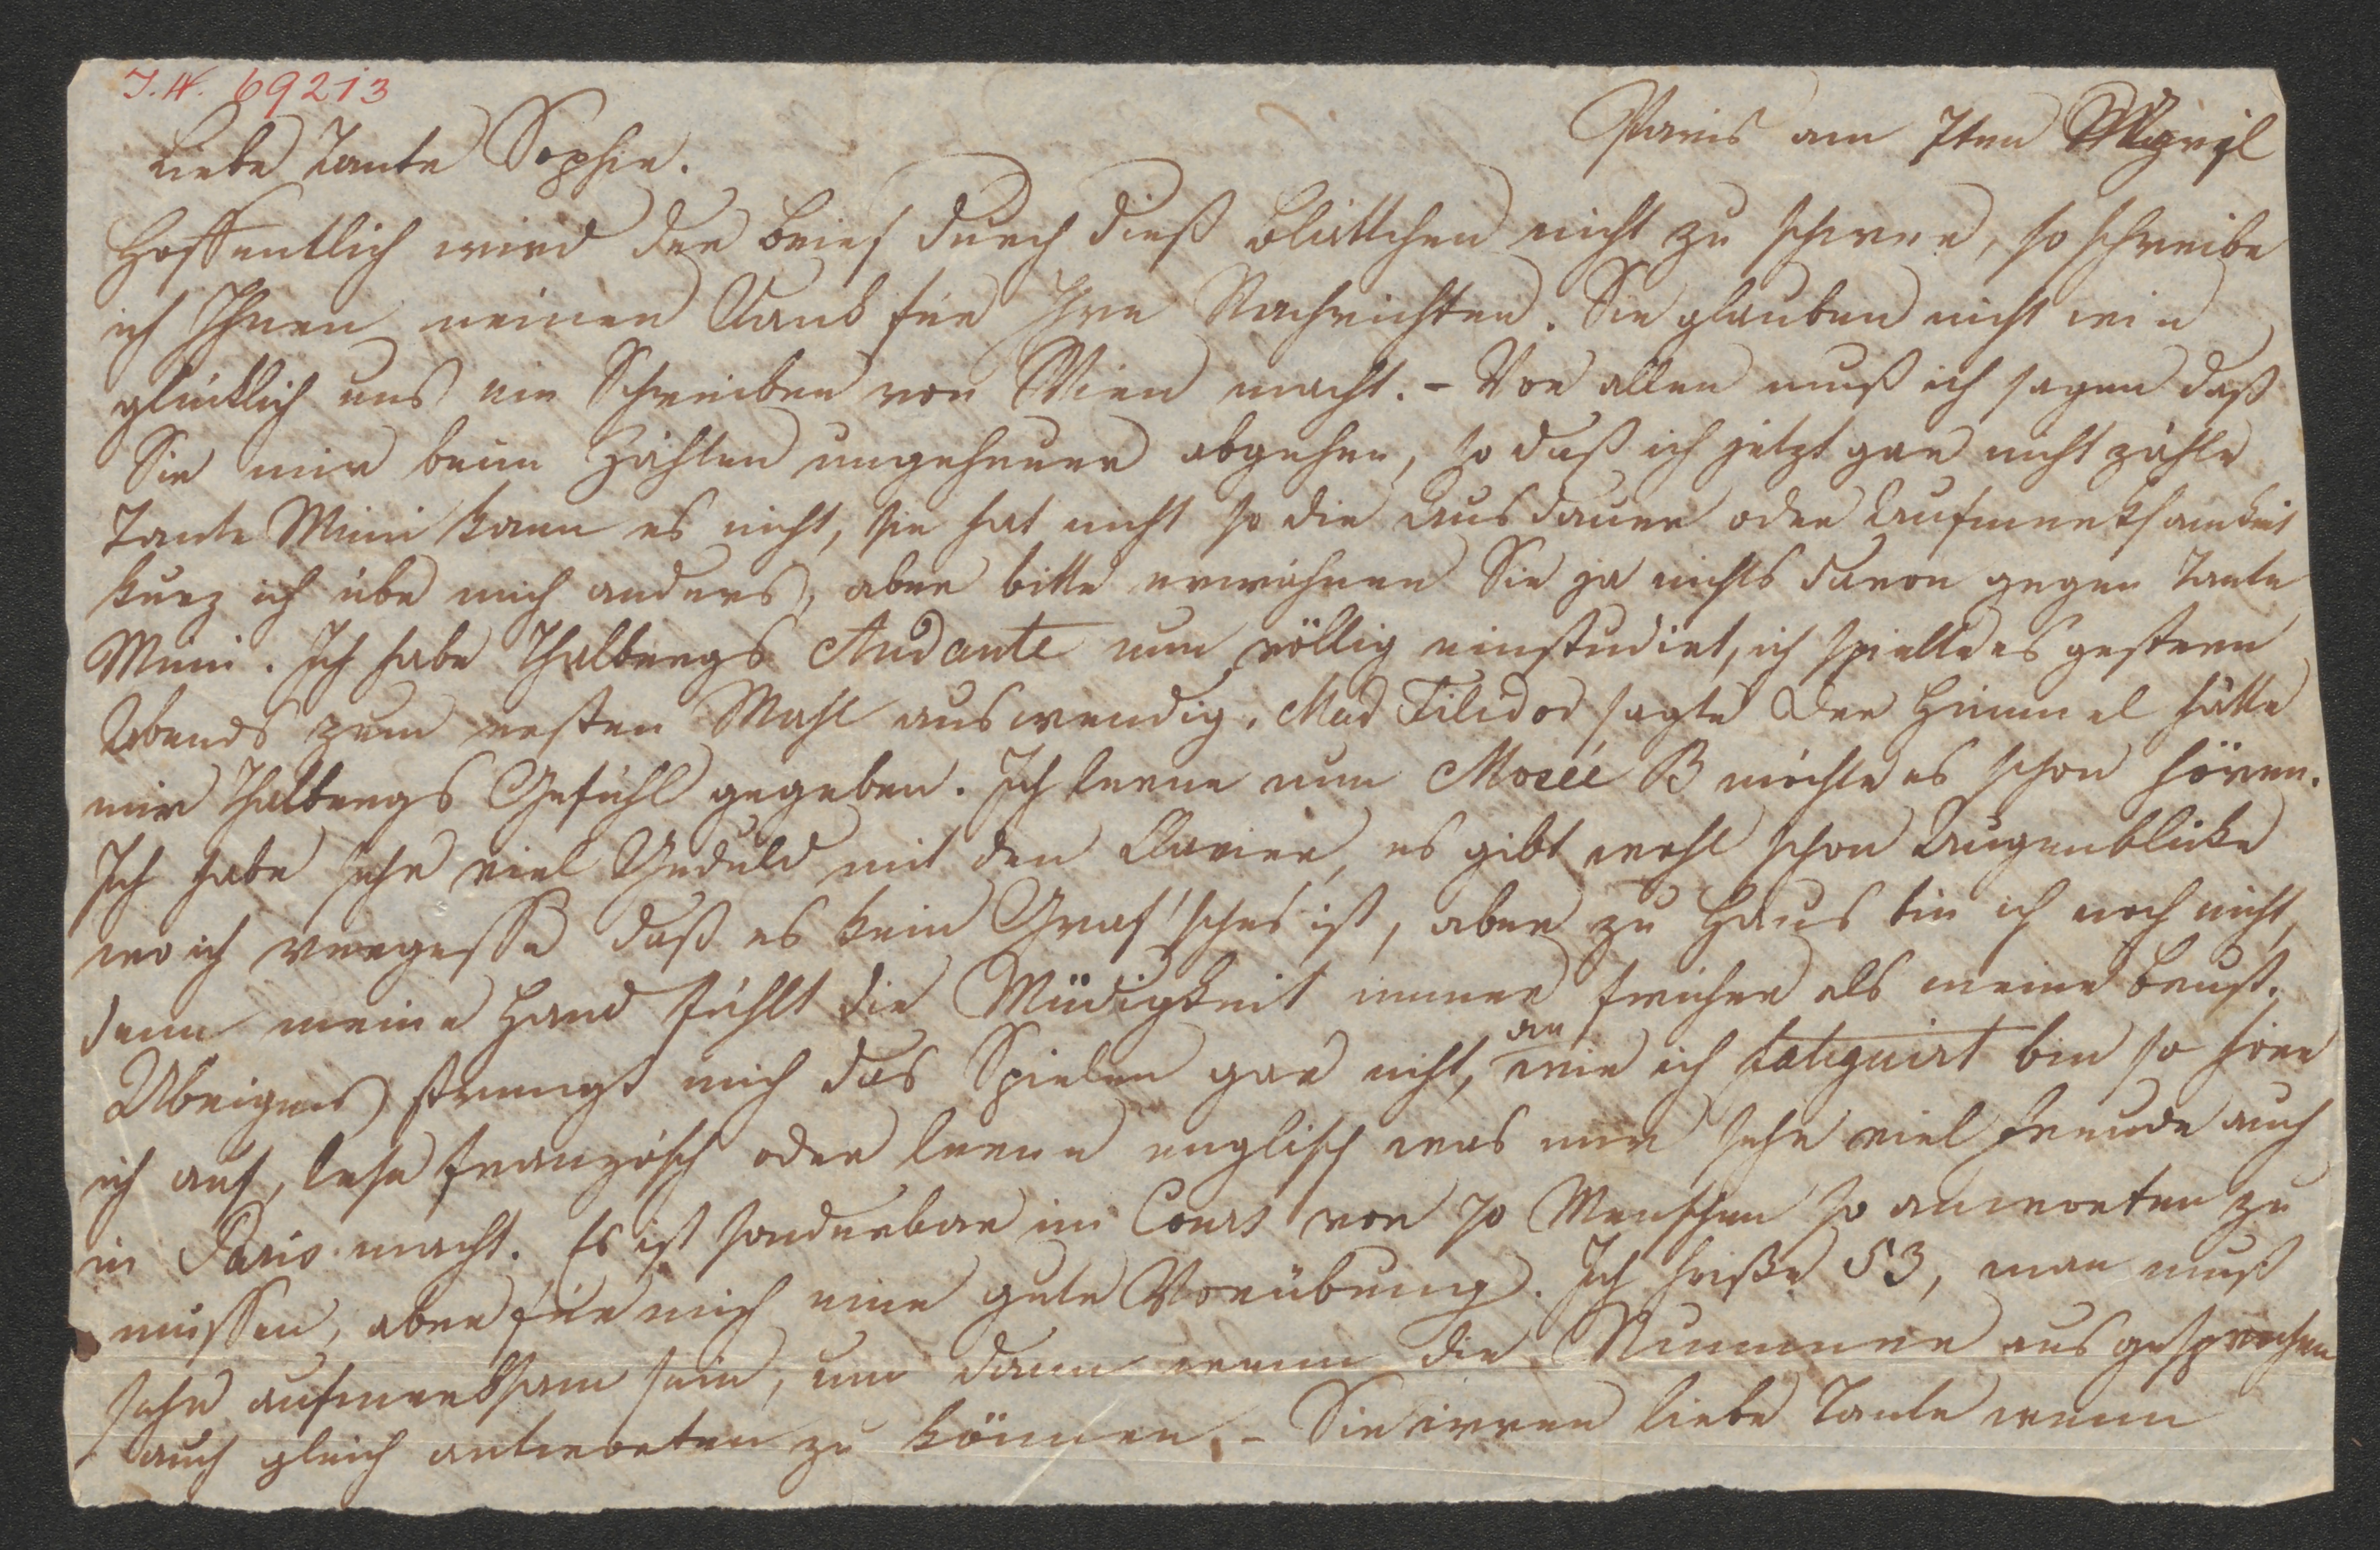 I. N. 69213
Paris am 7ten April
Liebe Tante Sophie.
Hoffentlich wird der Brief durch dieß Blättchen nicht zu schwer, so schreibe
ich Ihnen meinen Dank für Ihre Nachrichten. Sie glauben nicht wie
glücklich uns ein Schreiben von Wien macht. – Vor allen muß ich sagen daß
Sie mir beim Zählen ungeheuer abgehen, so daß ich jetzt gar nicht zähle
Tante Mimi kann es nicht, sie hat nicht so die Ausdauer oder Aufmerksamkeit
kurz ich übe mich anders, aber bitte erwähnen Sie ja nichts davon gegen Tante
Mimi. Ich habe Thalbergs Andante nun völlig einstudirt, ich spielte es gestern
Abends zum ersten Mahl auswendig. Mad Filidor sagte der Himmel hätte
mir Thalbergs Gefühl gegeben. Ich lerne nun Moseé B möchte es schon hören.
Ich habe sehr viel Geduld mit den Clavier, es gibt wohl schon Augenblicke
wo ich vergesse daß es kein Graf'sches ist, aber zu Haus bin ich noch nicht,
denn meine Hand fühlt die Müdigkeit immer früher als meine Brust.
Übrigens strengt mich das Spielen gar nicht, an wie ich fatiguirt bin so höre
ich auf, lese französch oder lerne englisch was mir sehr viel Freude auch
in Paris macht. Es ist sonderbar im Cours vor 70 Menschen so anworten zu
müssen, aber für mich eine gute Vorübung. Ich heiße 53, man muß
sehr aufmerksam sein, um dann wenn die Nummer ausgesprochen
auch gleich antworten zu können. – Sie irren liebe Tante wenn